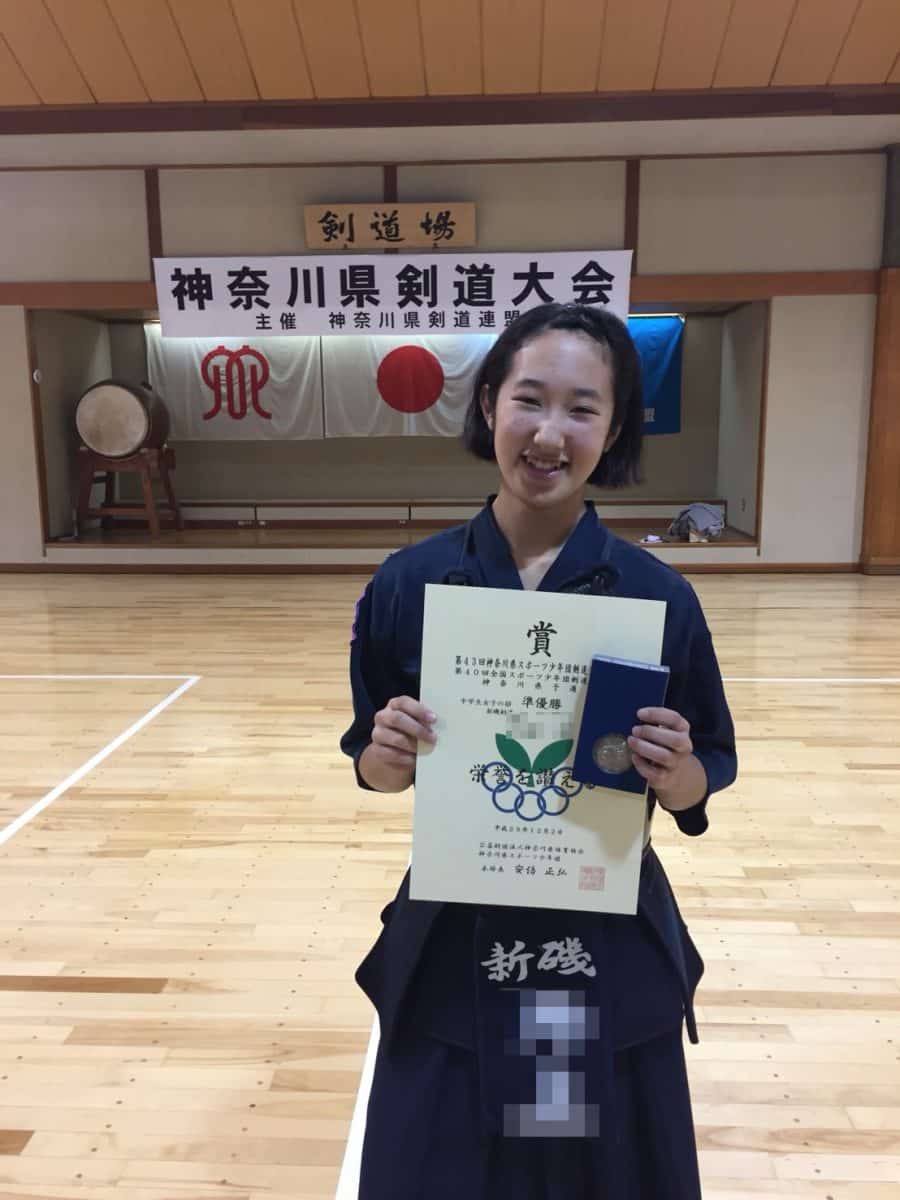 剣道場
神奈川県剣道大会
主催　神奈川県剣道連盟
賞
第43回神奈川県スポーツ少年団剣道
第40回全国スポーツ少年団剣道
神奈川県予選
中学生女子の部　準優勝
新磯剣
栄誉を讃える
平成29年12月2
公益財団法人神奈川県体育協会
神奈川県スポーツ少年団
本部長　安倍　正弘
盟
新磯